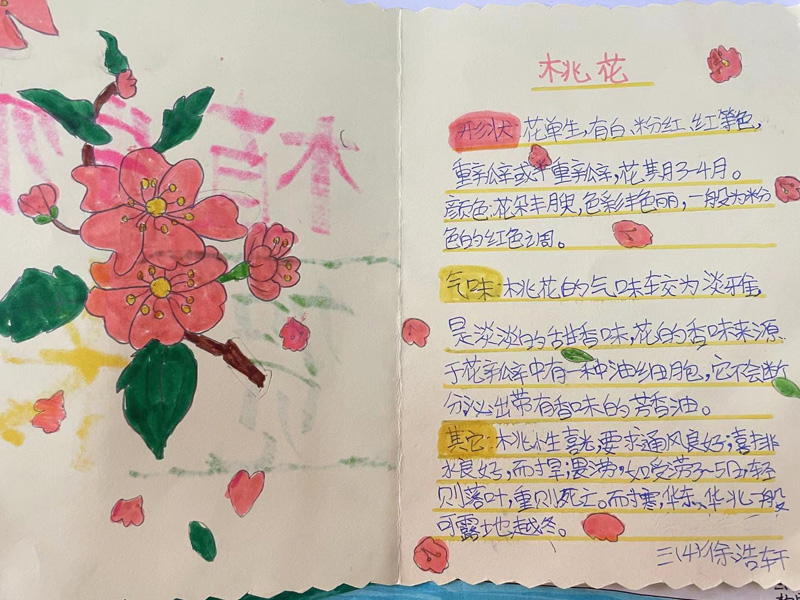 桃花
形状:花单生,有白、粉红、红等色,
重瓣或半重瓣,花期3-4月。
颜色:花朵丰腴,色彩丰色丽,一般为粉
色的红色调。
气味:桃花的气味较为淡雅,
是淡淡的甜香味,花的香味来源
于花瓣中有一种油细胞,它不会断
分泌出带有香味的芳香油。
其它:桃小生喜光,要求通风良好;喜排
水良好,而寸旱;畏涝,如受涝3~5日,轻
则落叶,重则死亡。而寸寒,华东、华北一般
可露地越冬。
三(4)徐浩轩